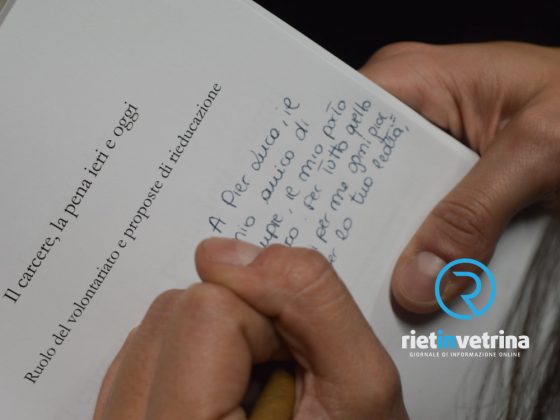 Il carcere, la pena ieri e oggi
Ruolo del volontariato e proposte di rieducazione
A Pier Luca, il
mio amico di
il mio porto
per tutto quello
per me ogni
lo tuo lealtà,
rietinvetrina
GIORNALE DI INFORMAZIONE ONLINE